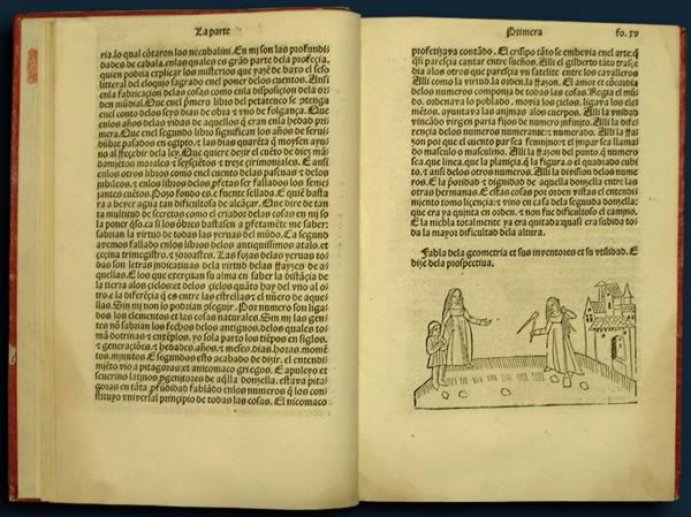 La parte
ria. lo qual cõtaron los necubalini. En mi son las profundi
dades de cabala. enlas quales es grãd parte dela profecia.
quien podria explicar los misterios que yazẽ de baxo el seso
litteral del eloquio sagrado enel poner delos cuentos. Ansi
enla fabricacion delas cosas como enla disposicion dela or
den mũdial. Que enel primero libro del
enel conto delos seys dias de obra z vno de folgança. Que
enlos años delas vidas de aquellos q̃ eran enla hedad pri
mera. Que enel segundo libro significan los años de serui
dũbre pasados en egipto. z las dias quarẽta q̃ moysen ayu
no al rescebir dela ley. Que quiere dezir el cuẽto de diez mã
damiẽtos morales z z treze cirimoniales. E ansi
enlos otros libros como enel cuento delas pascuas z delos
jubileos. z enlos libros delos p̃fetas ser fallados los semej
jantes cuẽtos. Pozo fondo es. e fuente sellada. E quiẽ basta
ra a bever agua tan dificultosa de alcãçar. Que dire de tan
ta multitud de secretos como el criador delas cosas en mi so
la poner q̃so. ca si los õbres bastasen a p̃fetamẽte me saber:
sabrian la virtud de todas las yervas del mũdo. Ca segund
avemos fallado enlos libros delos antiquissimos atalo. et
trimegistro. z zoroastes. Las fojas delas yervas to
das son letras indicativas dela virtud delas rayzes de a
quellas. E los que exercitan su alma en saber la distãcia de
la tierra alos cielos: et delos cielos quãto hay del vno al o
tro. e la diferẽcia q̃ es entre las estrellas: z el nũero de aque
llas. Sin mi non lo podrian p̃seguir. Por numero son liga
dos los elementos et las cosas naturales. Sin mi las gen
tes nõ sabrian los fechos delos antiguos. delos quales to
mã dotrinas z enxẽplos. yo sola parto los tiẽpos en siglos.
z generaciões. z hedades. años. z meses. dias. horas. momẽ
tos. mjnutos. E segundos esto acabado de dezir. el entendi
miẽto vio a pitagoras: et anicomaco griegos. E apuleyo et
seuerino latinos p̃genitores de aq̃lla donzella. estava pita
goras en tãta p̃fũdidad fablãdo enlos numeros q̃ los con
stituyo vniversal principio de todas las cosas. El nicomaco
Primera
fo. xv
profetizava contãdo. El crisipo tãto se embevia enel arte: q̃
q̃si parescia cantar entre sueños. Alli el gilberto tãto trasçe
dia alos otros que parescia vn satelite entre los cavalleros
Alli como la virtud la orden. la razon. El amor et cõcordia
delos numeros componia de todas las cosas. Regia el mũ
do. ordenava lo poblado. movia los cielos. ligava los ele
mẽtos. ayuntava las animas alos cuerpos. Alli la vnidad
vincãdo virgen paria fijos de numero infinito. Alli la dife
rencia delos numeros numerante: z numerado. Alli la ra
zon por que el cuento par sea femijno: et el impar sea llamas
do masculo o masculino. Alli la razon del punto. q̃ numero
sea. que linea. que la planicia. q̃ la figura. o el quadrado cubi
to. z ansi delos otros numeros. Alli la division delos nume
ros. E la posidad z dignidad de aquella donzella entre las
otras hermanas. E estas cosas por orden vistas el entendi
mjento tomo licencia: z vino en casa dela segunda donzella:
que era ya quinta en orden. z non fue dificultoso el camino.
E la niebla totalmente ya era quitada: quasi era subida to
da la mayor dificultad dela altura.
Fabla dela geometria et sus inventores et su vtilidad. E
dize dela prospectiva.